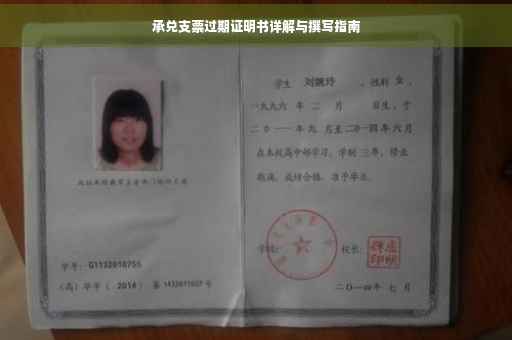 承兑支票过期证明书详解与撰写指南
学生 刘婉玲 ,性别 女 ,
一九九六 年 二 月 日生,于
二〇一一 年 九 月至 二〇一四 年 六 月
在本校高中部学习,学制 三 年,修业
期满,成绩合格,准予毕业。
学号: G1132010755
(高)毕字( 2014 )第 1432011007 号
学校:
校长:
二〇一四年 七 月